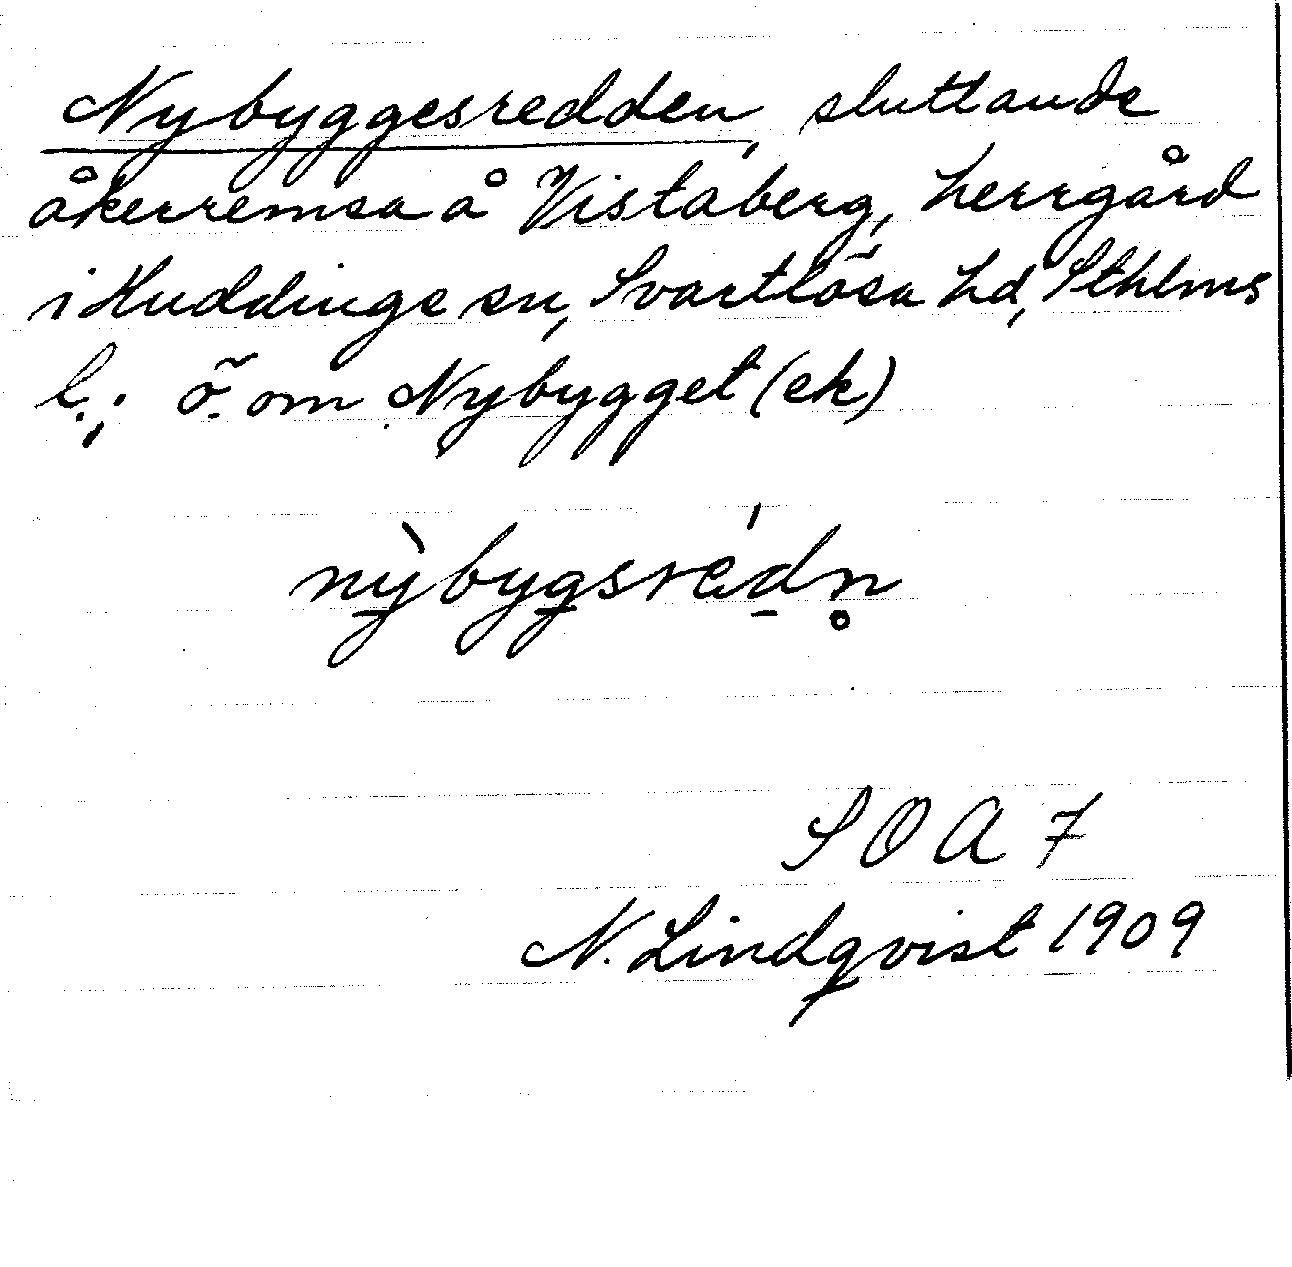 Nybyggesredden, sluttande
åkerremsa å Vistaberg, herrgård
i Huddinge sn, Svartlösa hd, Sthlms
l.; ö. om Nybygget (ek)
nỳbygsrédn̥
S O A 7
N. Lindqvist 1909